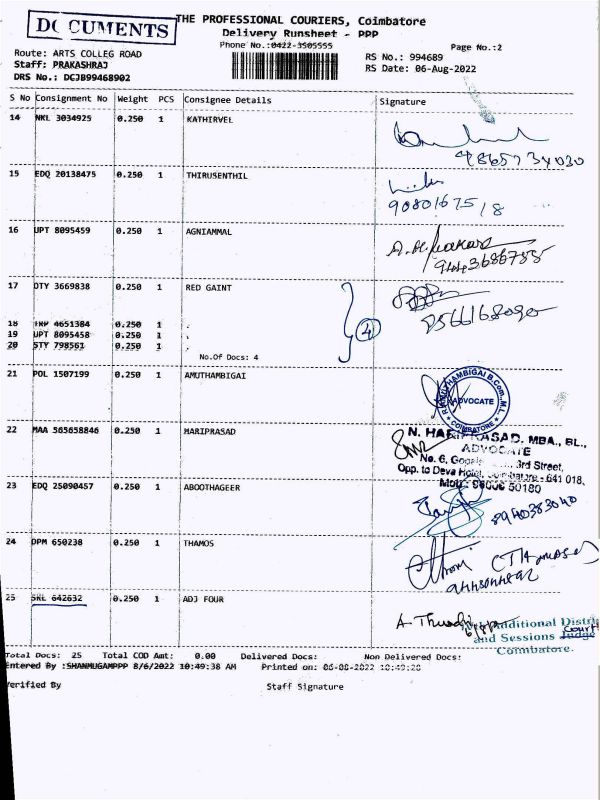 DOCUMENTS
THE PROFESSIONAL COURIERS, Coimbatore
Delivery Runsheet - PPP
Phone No.:0422-3505555
Page No.:2
Route: ARTS COLLEG ROAD
RS No.: 994689
Staff: PRAKASHRAJ
RS Date: 06-Aug-2022
DRS No.: DCJB99468902
S No Consignment No Weight PCS Consignee Details Signature
14 NKL 3034925 0.250 1 KATHIRVEL
9865734030
15 EDQ 20138475 0.250 1 THIRUSENTHIL
9080167518
16 UPT 8095459 0.250 1 AGNIAMMAL
17 OTY 3669838 0.250 1 RED GAINT
8566168090
18 TRP 4651384 0.250 1 .
19 UPT 8095458 0.250 1 .
20 STY 798561 0.250 1 .
4
No.Of Docs: 4
21 POL 1507199 0.250 1 AMUTHAMBIGAI
R. AMUTHAMBIGAI B.Com., M.L.
ADVOCATE
COIMBATORE
22 MAA 565658846 0.250 1 MARIPRASAD
N. HARIPRASAD, MBA., BL.,
ADVOCATE
No. 6, 3rd Street,
Opp. to Deva Hotel, Coimbatore - 641 018,
Mob : 98006 50180
23 EDQ 25090457 0.250 1 ABOOTHAGEER
8940383040
24 DPM 650238 0.250 1 THAMOS
25 SRL 642632 0.250 1 ADJ FOUR
Additional District
and Sessions Judge
Court
Coimbatore.
Total Docs: 25 Total COD Amt: 0.00 Delivered Docs: Non Delivered Docs:
Entered By :SHANMUGAMPPP 8/6/2022 10:49:38 AM Printed on: 06-08-2022 10:49:28
Verified By
Staff Signature